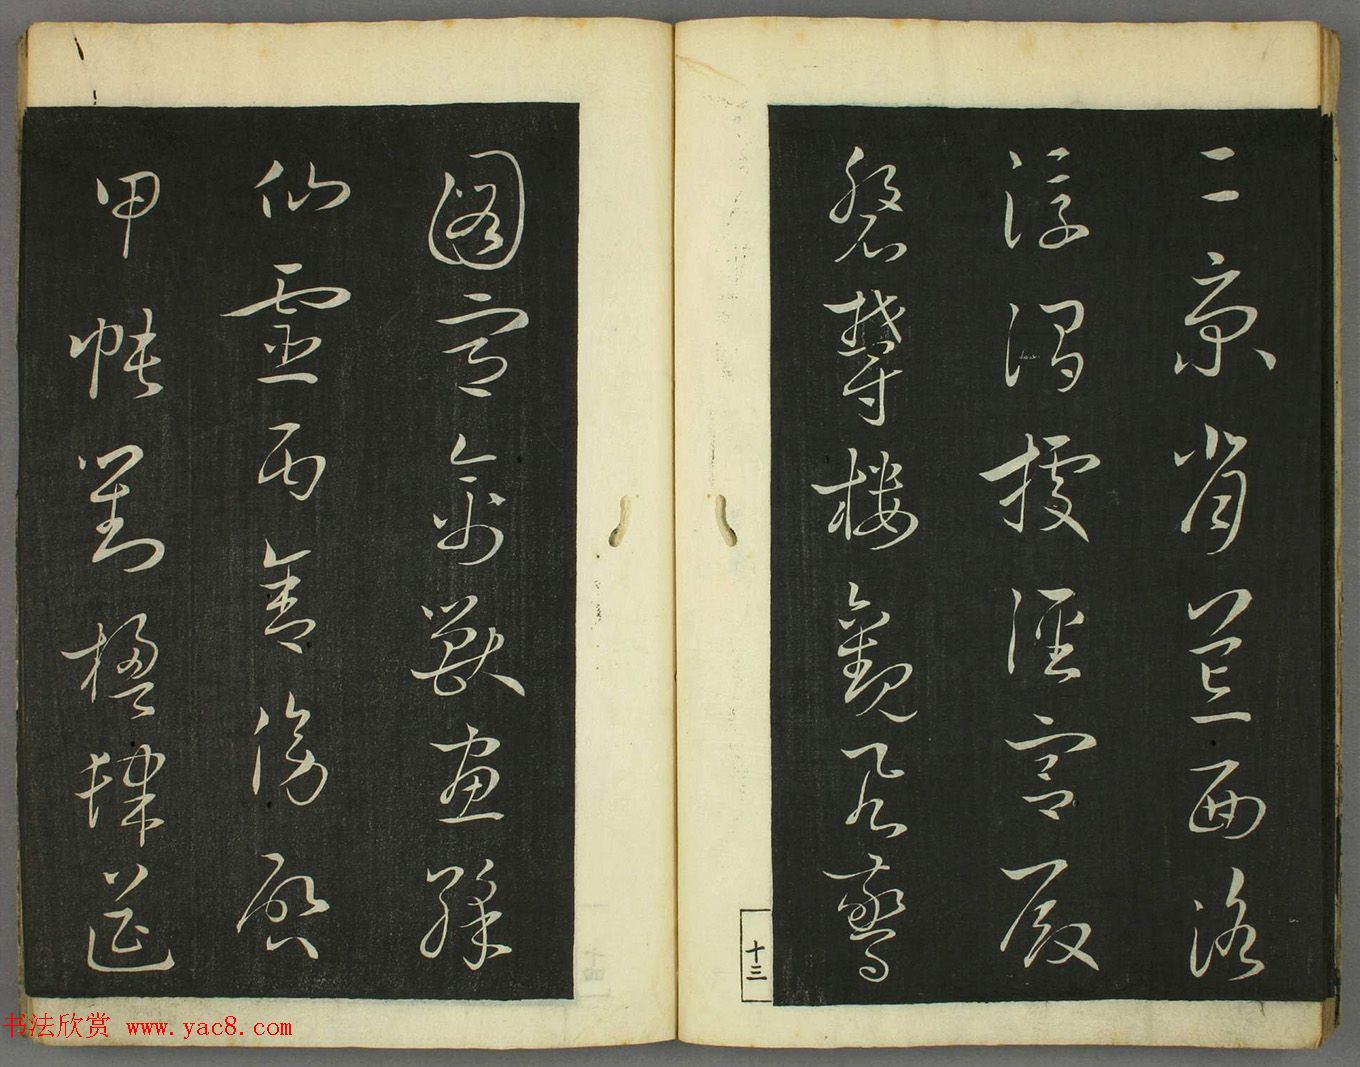 二京背芒面洛
浮渭據涇宮殿
磐鬱樓觀飛驚
十三
圖寫禽獸畫綵
仙靈丙舍傍啓
甲帳對楹肆筵
书法欣赏 www.yac8.com